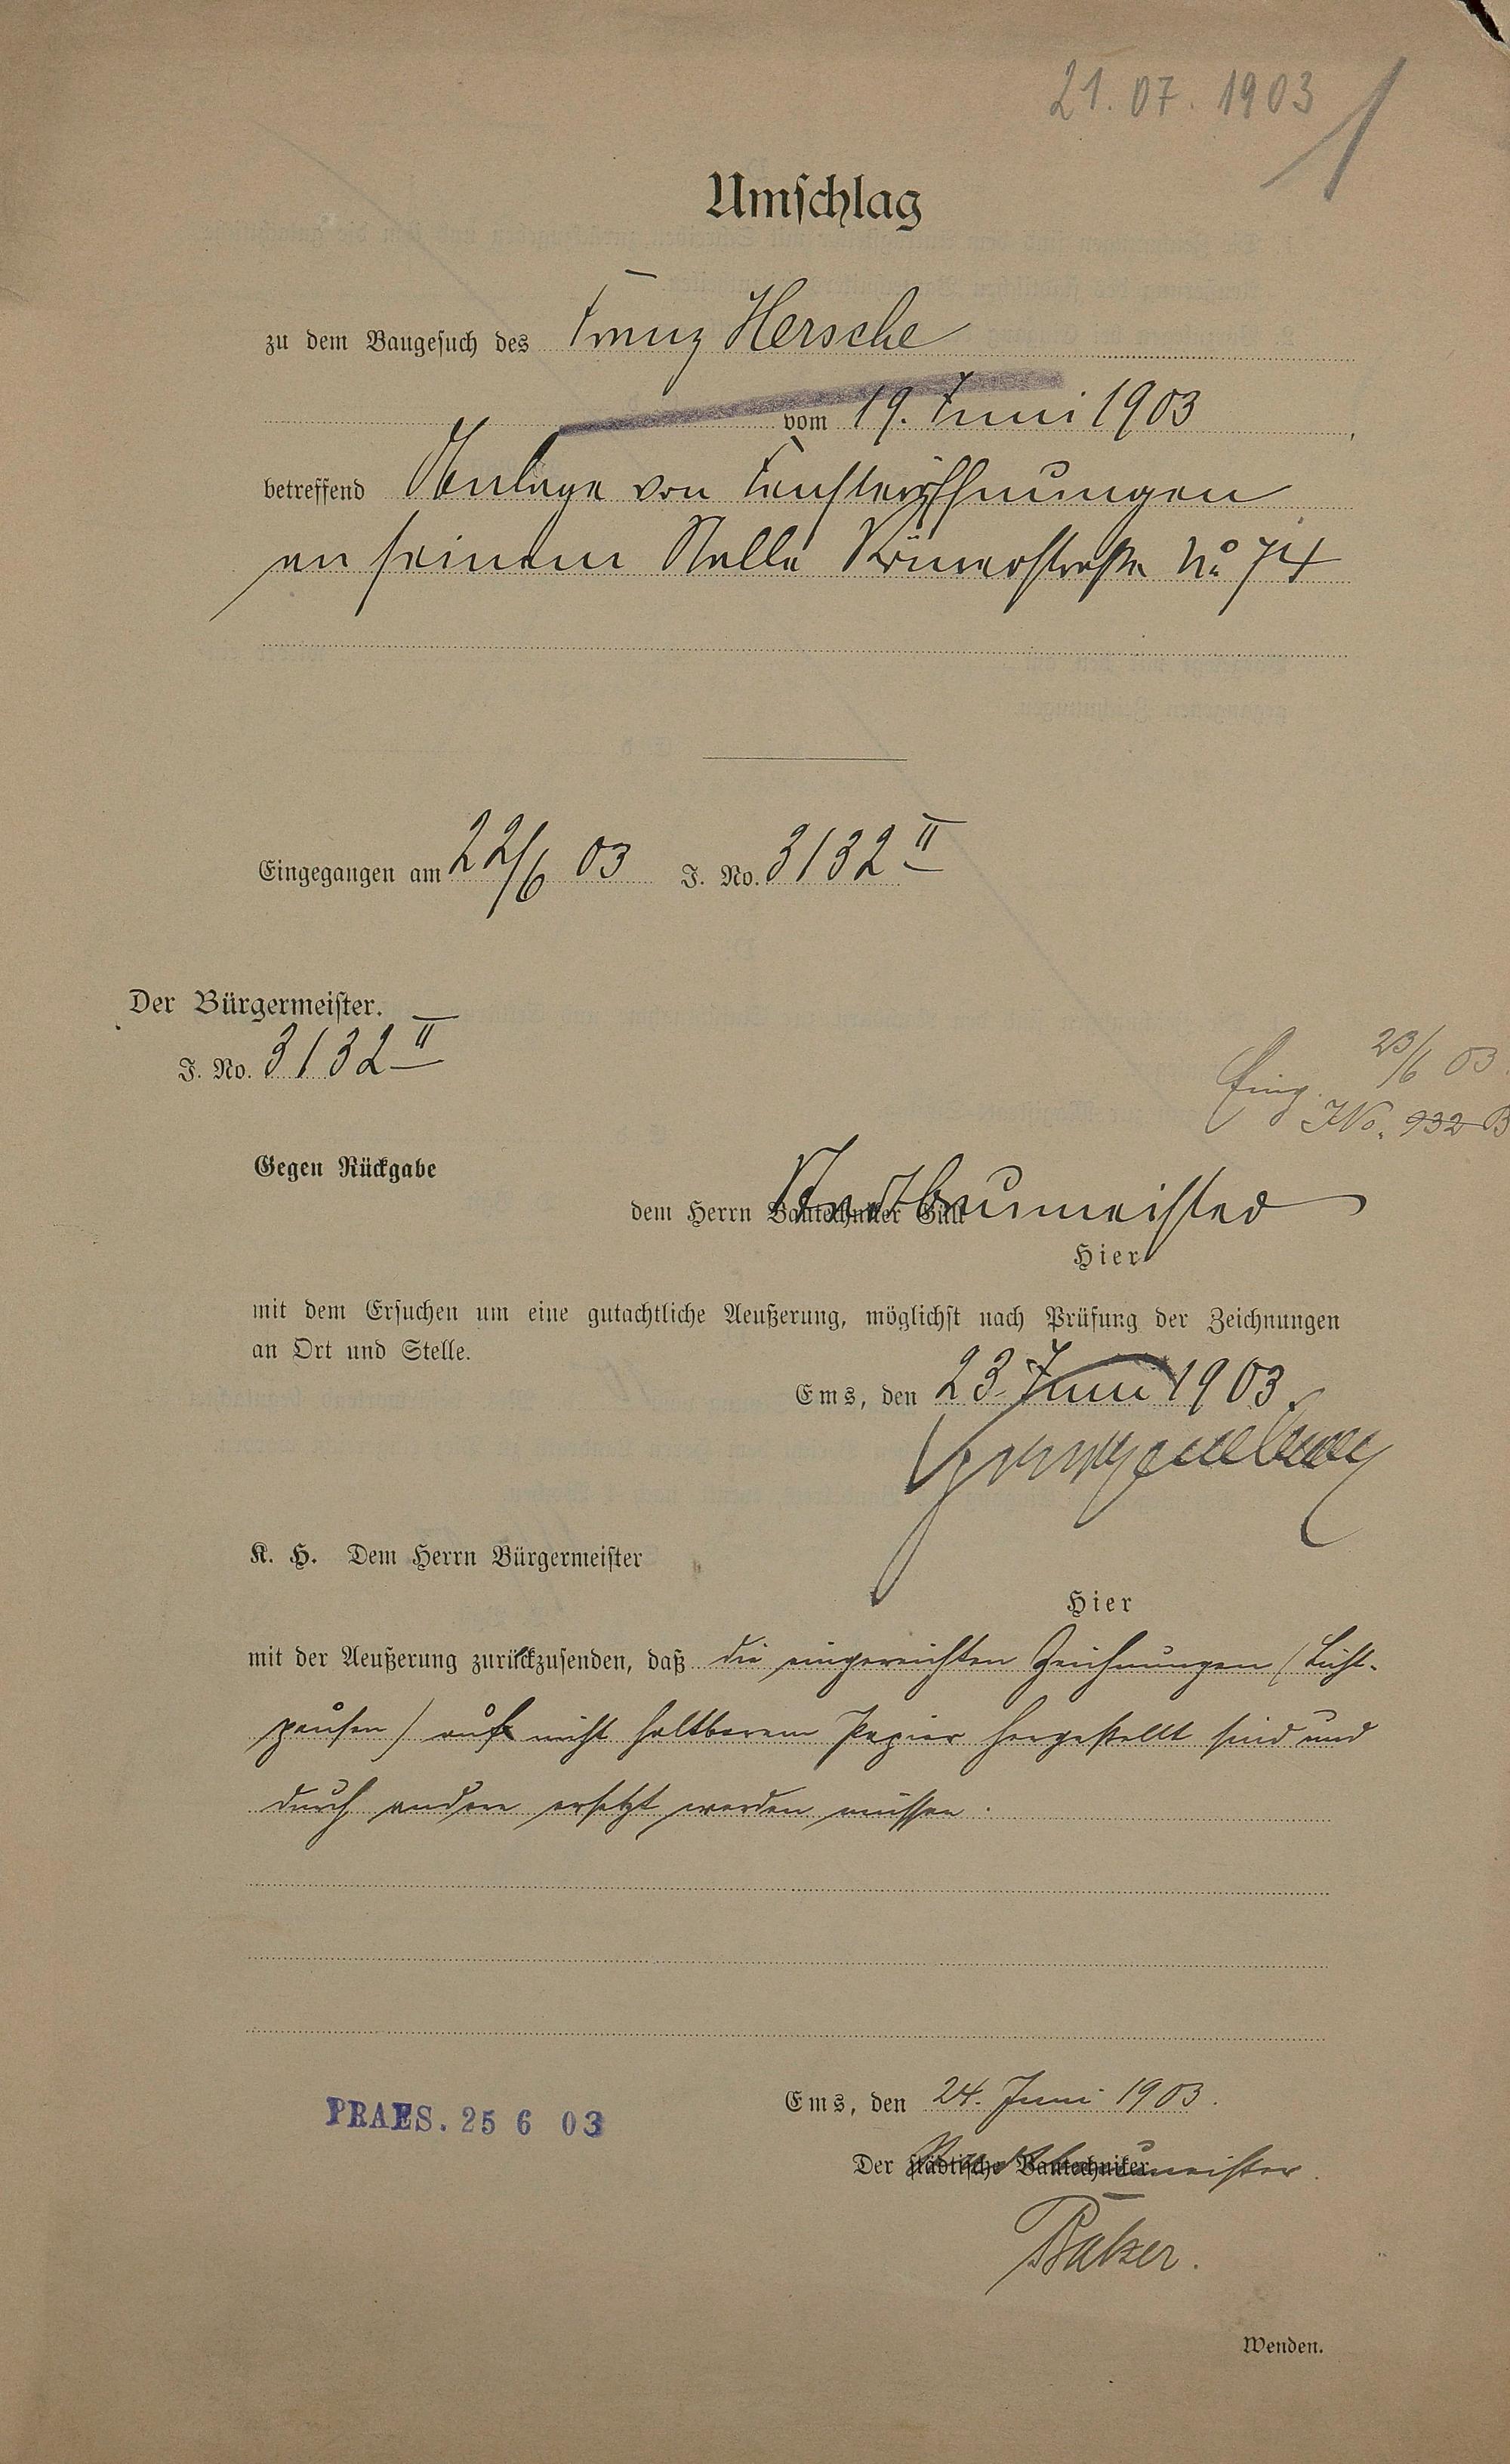 21.07.1903
Umschlag
zu dem Baugesuch des Franz Hersche
vom 19. Juni 1903
betreffend Anlage von Fensteröffnungen
an seinem Stalle Römerstraße No 74
Eingegangen am 22/6 03 J. No. 3132 II
Der Bürgermeister.
J. No. 3132 II
Eing. 23/6 03.
JNo. 932 B
Gegen Rückgabe
dem Herrn Bautechniker Stadtbaumeister
Hier
mit dem Ersuchen um eine gutachtliche Aeußerung, möglichst nach Prüfung der Zeichnungen
an Ort und Stelle.
Ems, den 23. Juni 1903.
K. H. Dem Herrn Bürgermeister
Hier
mit der Aeußerung zurückzusenden, daß die eingereichten Zeichnungen (Licht-
pausen) auf nicht haltbarem Papier hergestellt sind und
durch andere ersetzt werden müssen.
Ems, den 24. Juni 1903.
PRAES. 25 6 03
Der städtische Bautechniker Stadtbaumeister.
Balzer.
Wenden.